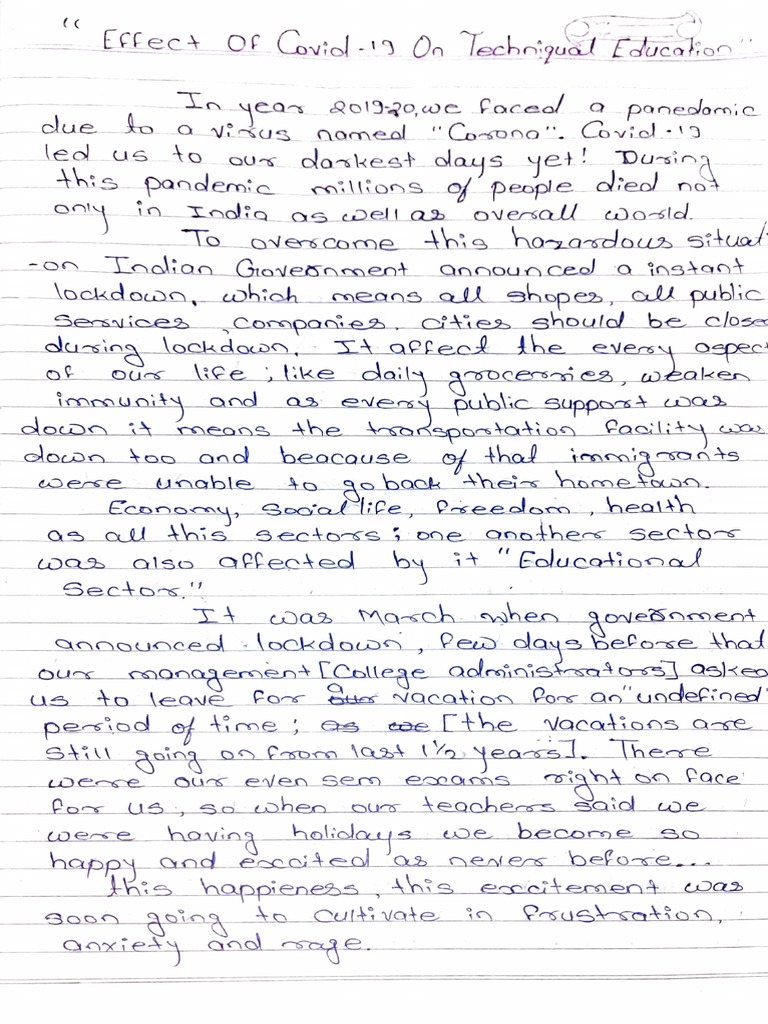 " Effect Of Covid-19 On Techniqual Education"
In year 2019-20, we faced a panedamic
due to a virus named "Corona". Covid-19
led us to our darkest days yet! During
this pandemic millions of people died not
only in India as well as overall world.
To overcome this hazardous situat
-on Indian Government announced a instant
lockdown, which means all shopes, all public
services, companies, cities should be close
during lockdown. It affect the every aspec
of our life; like daily grocerries, weaken
immunity and as every public support was
down it means the transportation facility was
down too and beacause of that immigrants
were unable to go back their hometown.
Economy, social life, freedom, health
as all this sectors; one another sector
was also affected by it "Educational
Sector."
It was March when government
announced lockdown, few days before that
our management [College administrators] asked
us to leave for our vacation for an "undefined"
period of time; as we [the vacations are
still going on from last 1½ years]. There
were our even sem exams right on face
for us, so when our teachers said we
were having holidays we become so
happy and excited as never before...
this happieness, this excitement was
soon going to cultivate in frustration,
anxiety and rage.